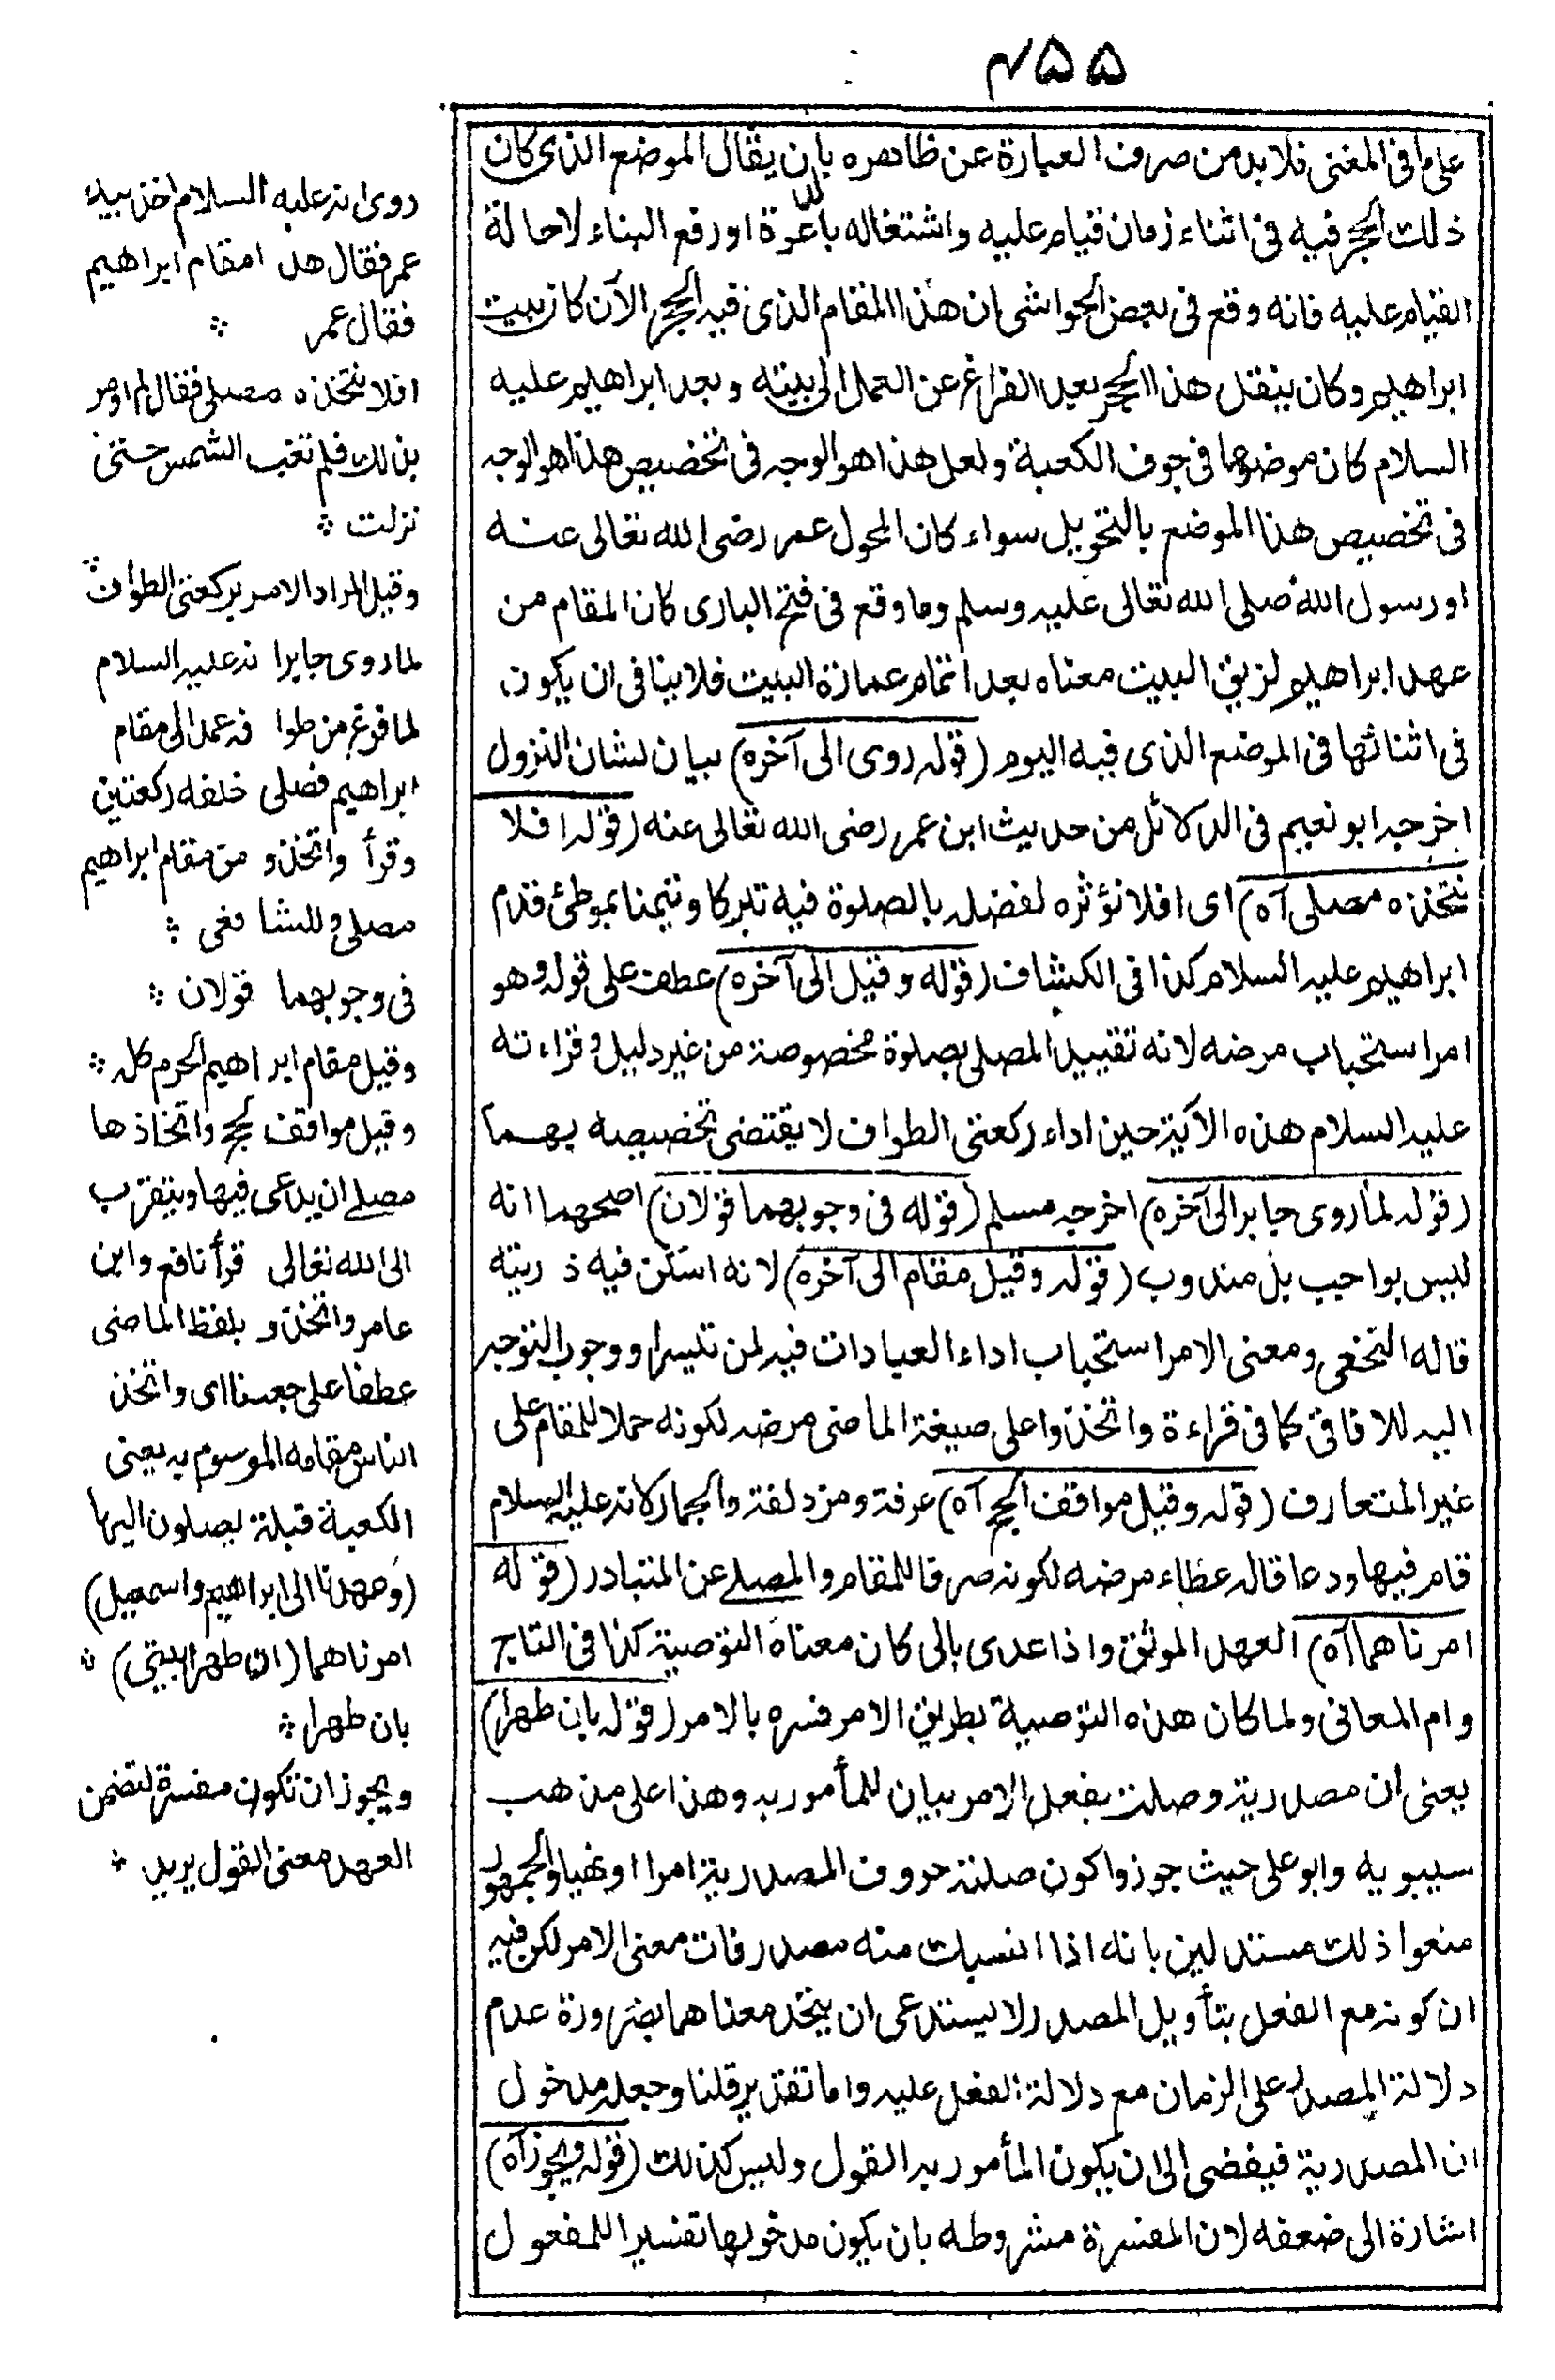 ۴۵۵
على ما فى المغنى فلا بد من صرف العبارة عن ظاهره بان يقال الموضع الذى كان
ذلك الحجر فيه فى اثناء زمان قيامه عليه واشتغاله بالدعوة او رفع البناء لا حالة
القيام عليه فانه وقع فى بعض الحواشى ان هذا المقام الذى فيه الحجر الآن كان بيت
ابراهيم وكان ينقل هذا الحجر بعد الفراغ عن العمل الى بيته وبعد ابراهيم عليه
السلام كان موضوعا فى جوف الكعبة ولعل هذا هو الوجه فى تخصيص هذا هو الوجه
فى تخصيص هذا الموضع بالتحويل سواء كان المحول عمر رضى الله تعالى عنه
او رسول الله صلى الله تعالى عليه وسلم وما وقع فى فتح البارى كان المقام من
عهد ابراهيم لزيق البيت معناه بعد اتمام عمارة البيت فلا ينافى ان يكون
فى اثنائها فى الموضع الذى فيه اليوم (قوله روى الى آخره) بيان لشان النزول
اخرجه ابو نعيم فى الدلائل من حديث ابن عمر رضى الله تعالى عنه (قوله افلا
نتخذه مصلى آه) اى افلا نؤثره لفضله بالصلوة فيه تبركا وتيمنا بموطئ قدم
ابراهيم عليه السلام كذا فى الكشاف (قوله وقيل الى آخره) عطف على قوله وهو
امر استحباب مرضه لانه تقييد المصلى بصلوة مخصوصة من غير دليل وقراءته
عليه السلام هذه الآية حين اداء ركعتى الطواف لا يقتضى تخصيصه بهما
(قوله لما روى جابر الى آخره) اخرجه مسلم (قوله فى وجوبهما قولان) اصحهما انه
ليس بواجب بل مندوب (قوله وقيل مقام الى آخره) لانه اسكن فيه ذريته
قاله النخعى ومعنى الامر استحباب اداء العبادات فيه لمن تيسرا ووجوب التوجه
اليه للافاقى كما فى قراءة واتخذوا على صيغة الماضى مرضه لكونه حملا للمقام على
غير المتعارف (قوله وقيل مواقف الحج آه) عرفة ومزدلفة والجمار لانه عليه السلام
قام فيها ودعا قاله عطاء مرضه لكونه صرفا للمقام والمصلى عن المتبادر (قوله
امرناهما آه) العهد الموثق واذا عدى بالى كان معناه التوصية كذا فى التاج
وام المعانى ولما كان هذه التوصية بطريق الامر فسره بالامر (قوله بان طهرا)
يعنى ان مصدرية وصلت بفعل الامر بيان للمأمور به وهذا على مذهب
سيبويه وابو على حيث جوزوا كون صلة حروف المصدرية امرا او نهيا والجمهور
منعوا ذلك مستدلين بانه اذا انسبك منه مصدر فات معنى الامر لكن فيه
ان كونه مع الفعل بتأويل المصدر لا يستدعى ان يتحد معناهما بضرورة عدم
دلالة المصدر على الزمان مع دلالة الفعل عليه واما تقدير قلنا وجعله مدخول
ان المصدرية فيفضى الى ان يكون المأمور به القول وليس كذلك (قوله ويجوز آه)
اشارة الى ضعفه لان المفسرة مشروطه بان يكون مدخولها تفسيرا للمفعول
روى انه عليه السلام اخذ بيد
عمر فقال هذا مقام ابراهيم
فقال عمر
افلا نتخذه مصلى فقال لم اومر
بذلك فلم تغب الشمس حتى
نزلت
وقيل المراد الامر بركعتى الطواف
لما روى جابر انه عليه السلام
لما فرغ من طوافه عمد الى مقام
ابراهيم فصلى خلفه ركعتين
وقرأ واتخذو من مقام ابراهيم
مصلى وللشافعى
فى وجوبهما قولان
وقيل مقام ابراهيم الحرم كله
وقيل مواقف الحج واتخاذها
مصلى ان يدعى فيها ويتقرب
الى الله تعالى قرأ نافع وابن
عامر واتخذو بلفظ الماضى
عطفا على جعلنا اى واتخذ
الناس مقامه الموسوم به يعنى
الكعبة قبلة يصلون اليها
(وعهدنا الى ابراهيم واسمعيل)
امرناهما (ان طهرا بيتى)
بان طهرا
ويجوز ان تكون مفسرة لتضمن
العهد معنى القول يريد